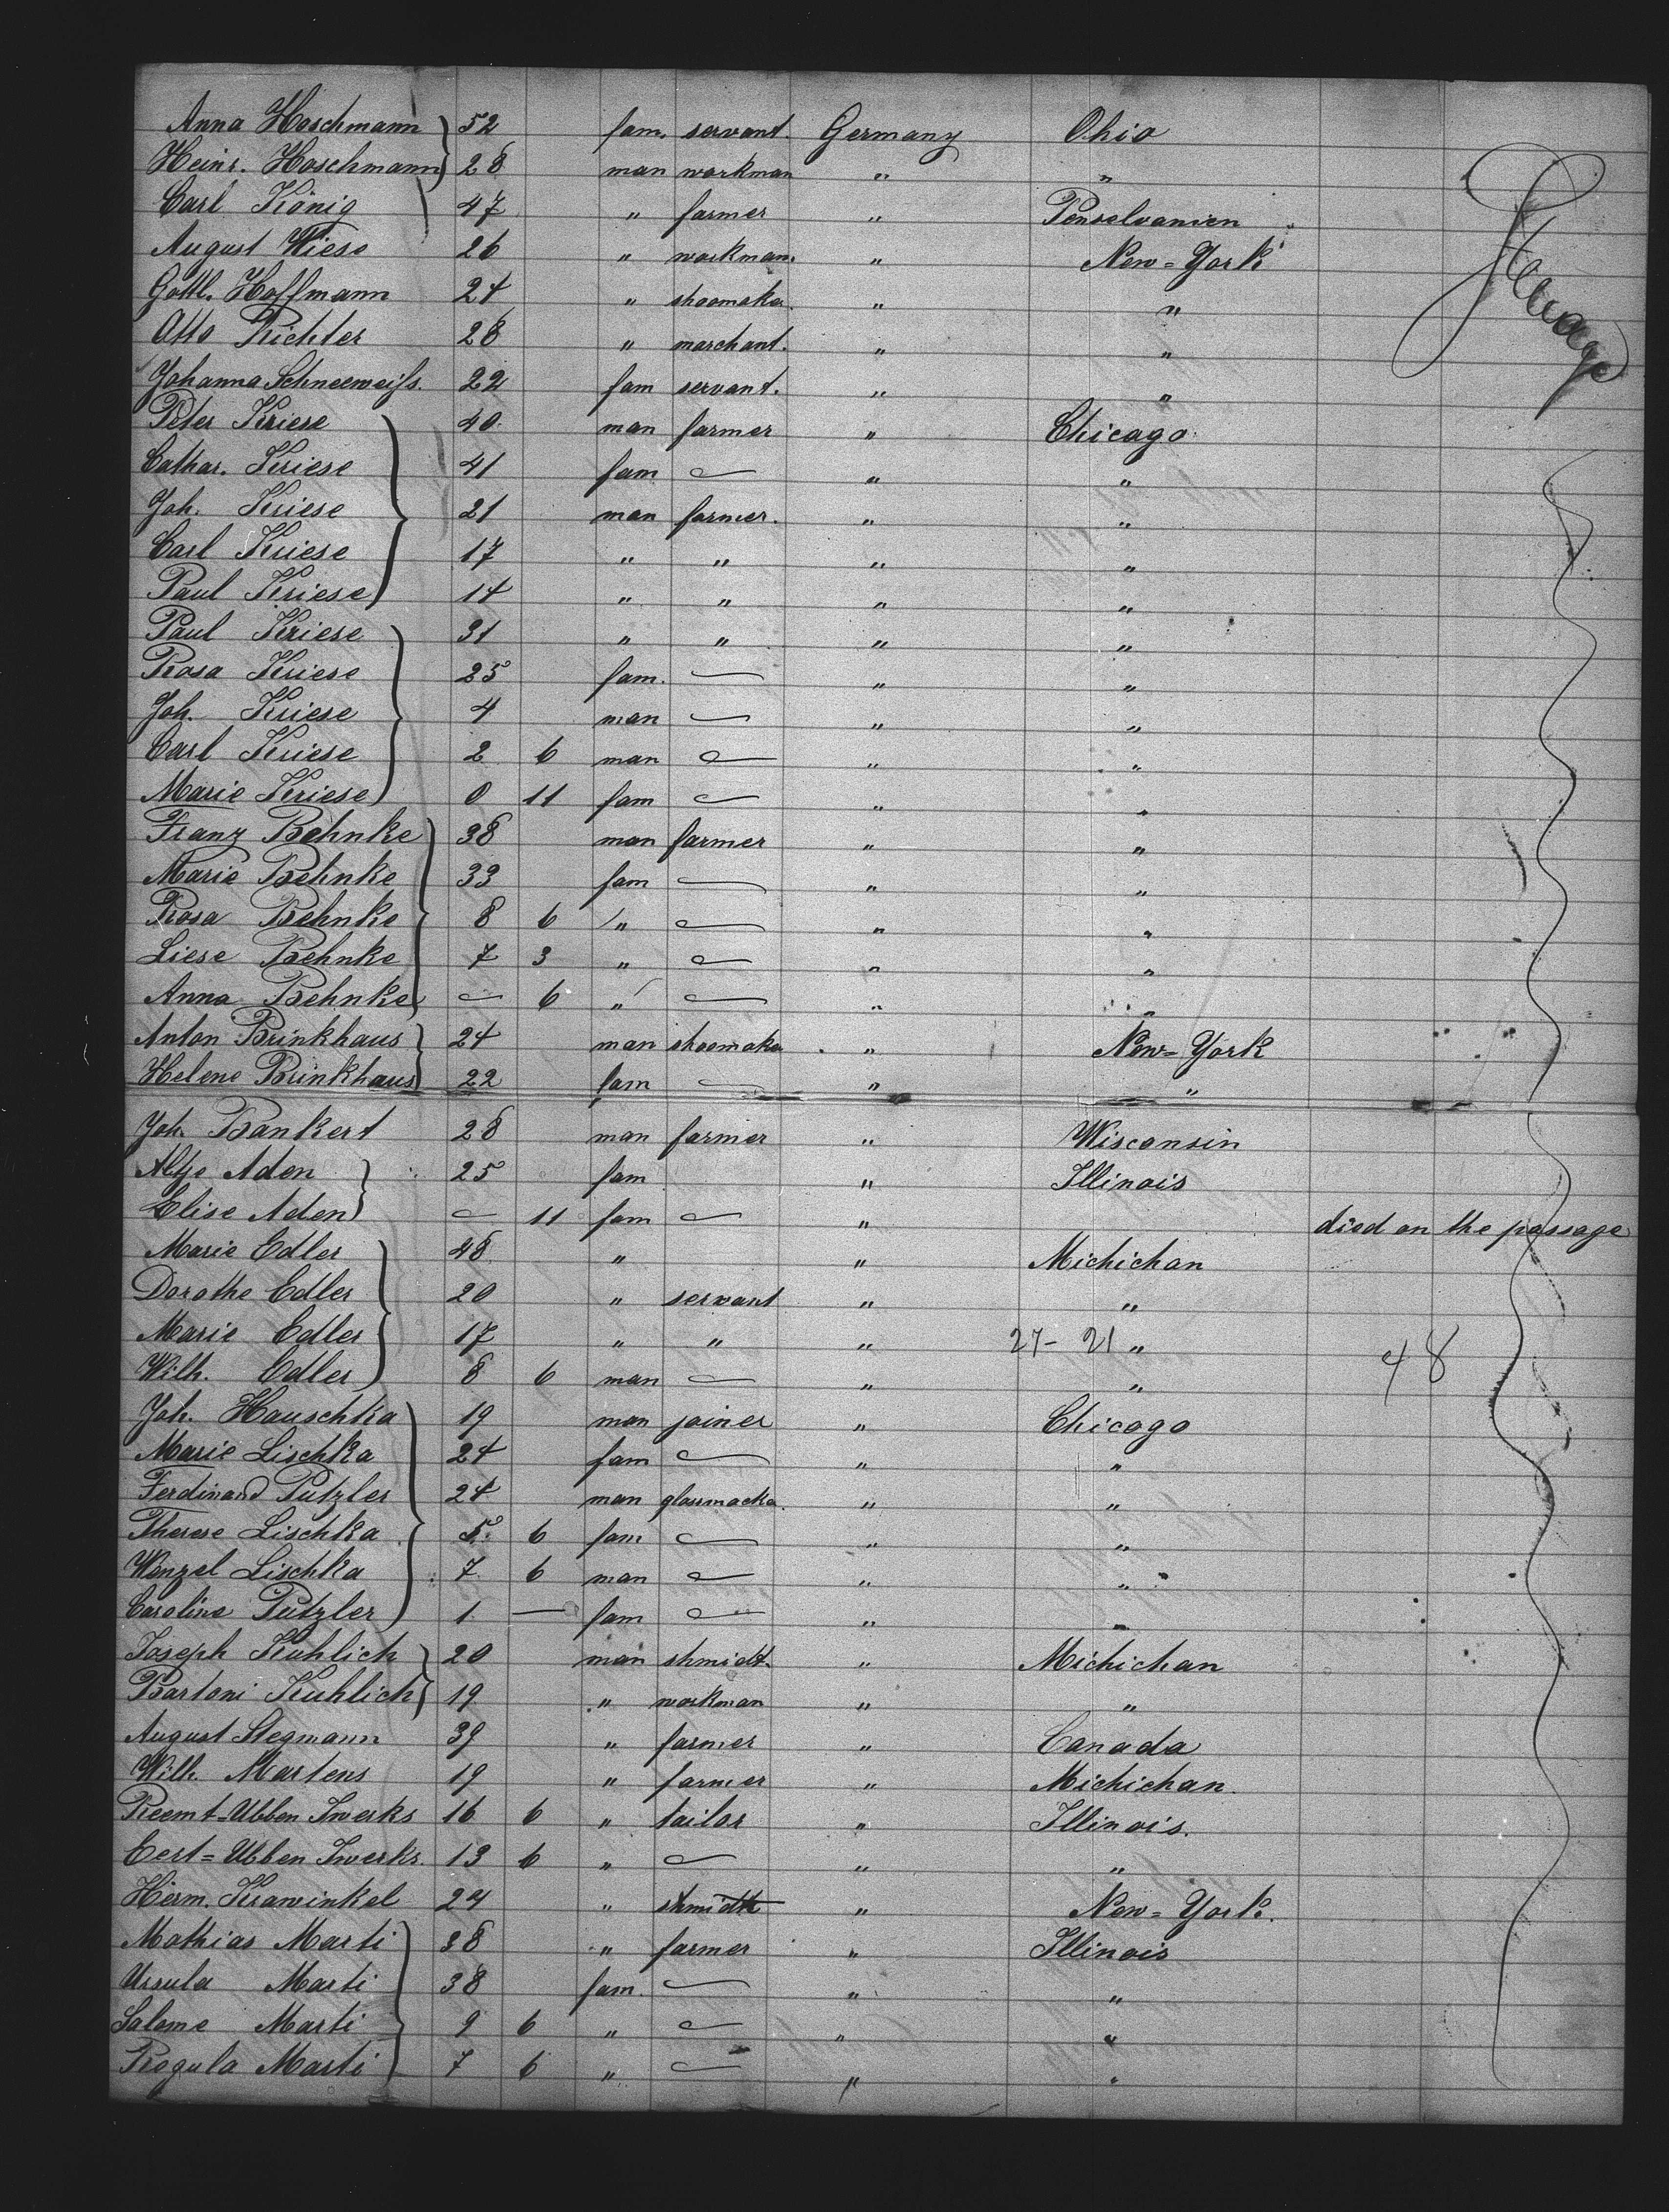 Anna Hoschmann 52 fam. servant. Germany Ohio
Heinr. Hoschmann 28 man workman " "
Carl König 47 " farmer " Penselvanien
August Wiese 26 " workman. " New=York
Gottl. Hoffmann 24 " shoomaker. " "
Otto Richter 28 " marchant. " "
Johanna Schneeweiſs. 22 fam servant. " "
Peter Kriese 40. man farmer " Chicago.
Cathar. Kriese 41 fam — " "
Joh. Kriese 21 man farmer. " "
Carl Kriese 17 " " " "
Paul Kriese 14 " " " "
Paul Kriese 31 " " " "
Rosa Kriese 25 fam. — " "
Joh. Kriese 4 man — " "
Carl Kriese 2 6 man — " "
Marie Kriese 0 11 fam — " "
Franz Behnke 38 man farmer " "
Marie Behnke 33 fam — " "
Rosa Behnke 8 6 " — " "
Liese Behnke 7 3 " — " "
Anna Behnke — 6 " — " "
Anton Brinkhaus 24 man shoomaker " New=York
Helene Brinkhaus 22 fam — " "
Joh. Bankert 28 man farmer " Wisconsin
Aden 25 fam " Illinois
Elise Aden — 11 fam — " died on the passage
Marie Edler 48 " " Michichan
Dorothe Edler 20 " servant " "
Marie Edler 17 " " " 27-21 " 48
Wilh. Edler 8 6 man — " "
Joh. Hauschka 19 man joiner " Chicago
Marie Lischka 24 fam — " "
Ferdinand Putzler 24 man glasmacka. " "
Therese Lischka 5. 6 fam — " "
Wenzel Lischka 7 6 man — " "
Caroline Putzler 1. — fam — " "
Joseph Kuhlich 20 man shmidt. " Michichan
Bartoni Kuhlich 19 " workman " "
August Stegmann 39 " farmer " Canada
Wilh. Martens 19 " farmer " Michichan.
Reemt=Ubben Swerks 16 6 " tailor " Illinois.
Eert=Ubben Swerks. 13 6 " — " "
Herm. Krawinkel 24 " shmidt " New=York.
Mathias Marti 38 " farmer " Illinois
Ursula Marti 38 fam. — " "
Salome Marti 9 6 " — " "
Regula Marti 7 6 " — " "